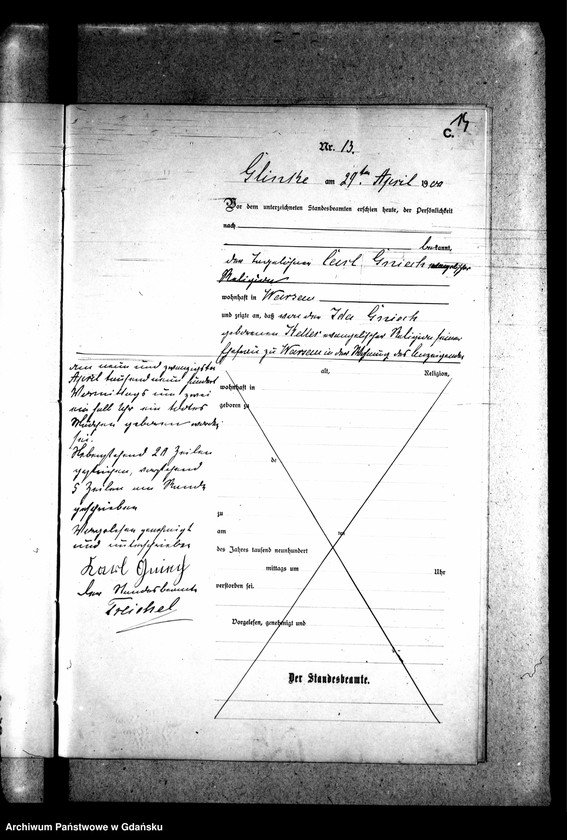 C. 14
Nr. 13.
Glinke am 29ten April 1900
Vor dem unterzeichneten Standesbeamten erschien heute, der Persönlichkeit
nach
bekannt,
der Carl Gniech evangelischer
Religion
wohnhaft in Warsen
und zeigte an, daß von der Ida Gniech
geborenen Keller evangelischer Religion seiner
Ehefrau zu Warsen in der Wohnung des Anzeigenden
am neun und zwanzigsten
April tausend neun hundert
Vormittags um zwei
ein halb Uhr ein todtes
Mädchen geboren worden
sei.
Nebenstehend 21 Zeilen
gestrichen, vorstehend
5 Zeilen am Rande
geschrieben
Vorgelesen genehmigt
und unterschrieben
Karl Gniech
Der Standesbeamte
Treichel
alt, Religion,
wohnhaft in
geboren zu
de
zu
am
des Jahres tausend neunhundert
mittags um Uhr
verstorben sei.
Vorgelesen, genehmigt und
Der Standesbeamte.
Archiwum Państwowe w Gdańsku